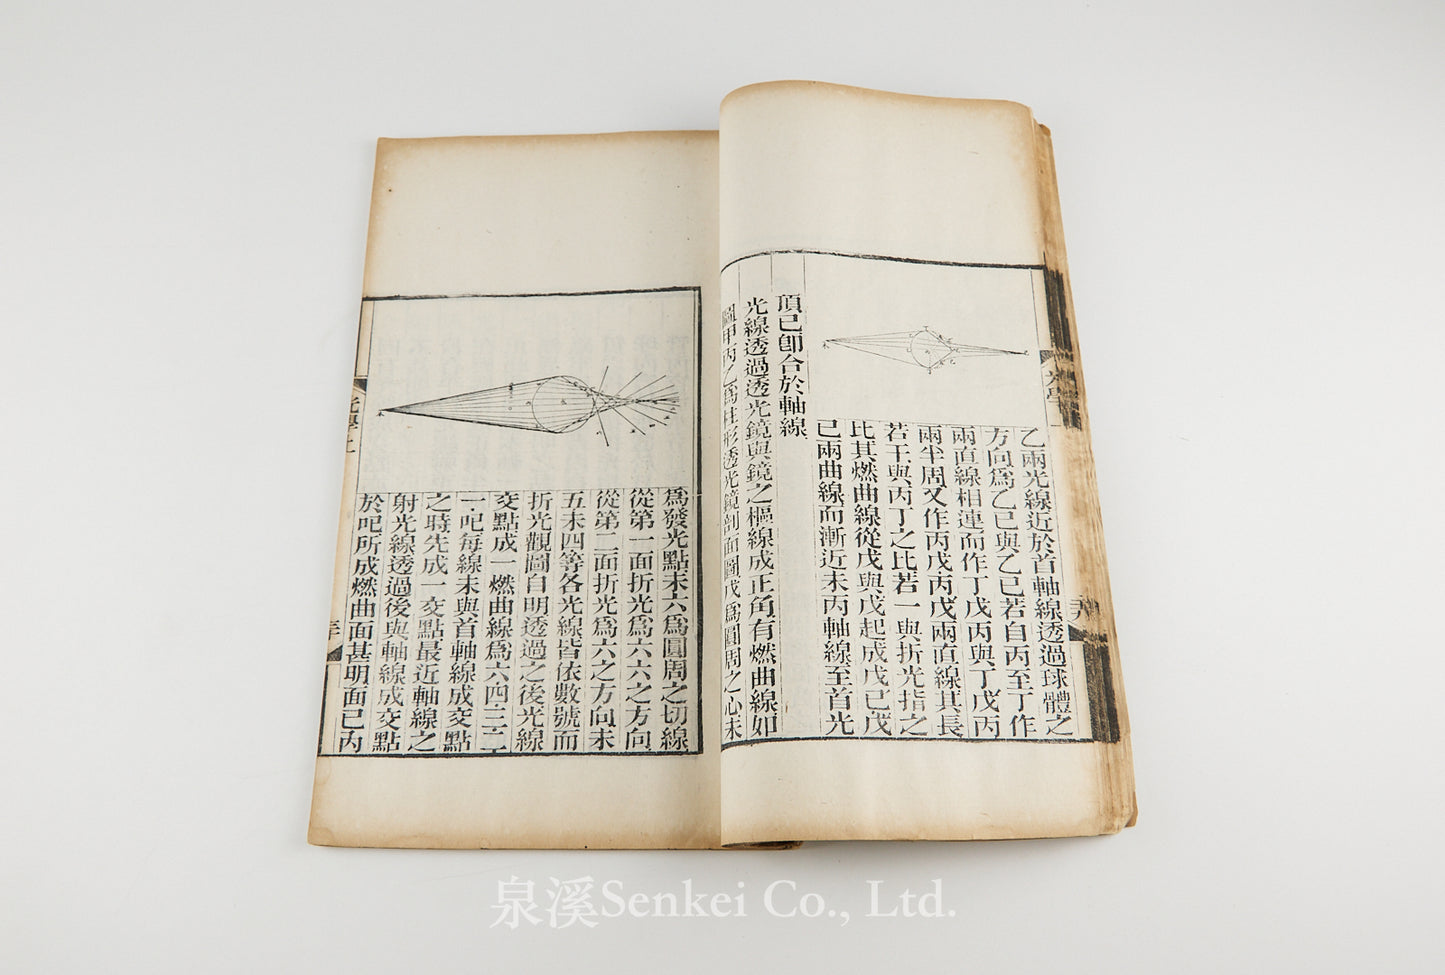 乙兩光線近於首軸線透過球體之
方向爲乙已與乙已若自丙至丁作
兩直線相連而作丁戊丙與丁戊丙
兩半周又作丙戊丙戊兩直線其長
若干與丙丁之比若一與折光指之
比其燃曲線從戊與戊起成戊已戊
已兩曲線而漸近未丙軸線至首光
頂已卽合於軸線
光線透過透光鏡與鏡之樞線成正角有燃曲線如
圖甲丙乙爲柱形透光鏡剖面圖戊爲圓周之心未
爲發光點未六爲圓周之切線
從第一面折光爲六六之方向
從第二面折光爲六之方向未
五未四等各光線皆依數號而
折光觀圖自明透過之後光線
交點成一燃曲線爲六四三二
一呎每線未與首軸線成交點
之時先成一交點最近軸線之
射光線透過後與軸線成交點
於呎所成燃曲面甚明面已丙
光學上
泉溪Senkei Co., Ltd.